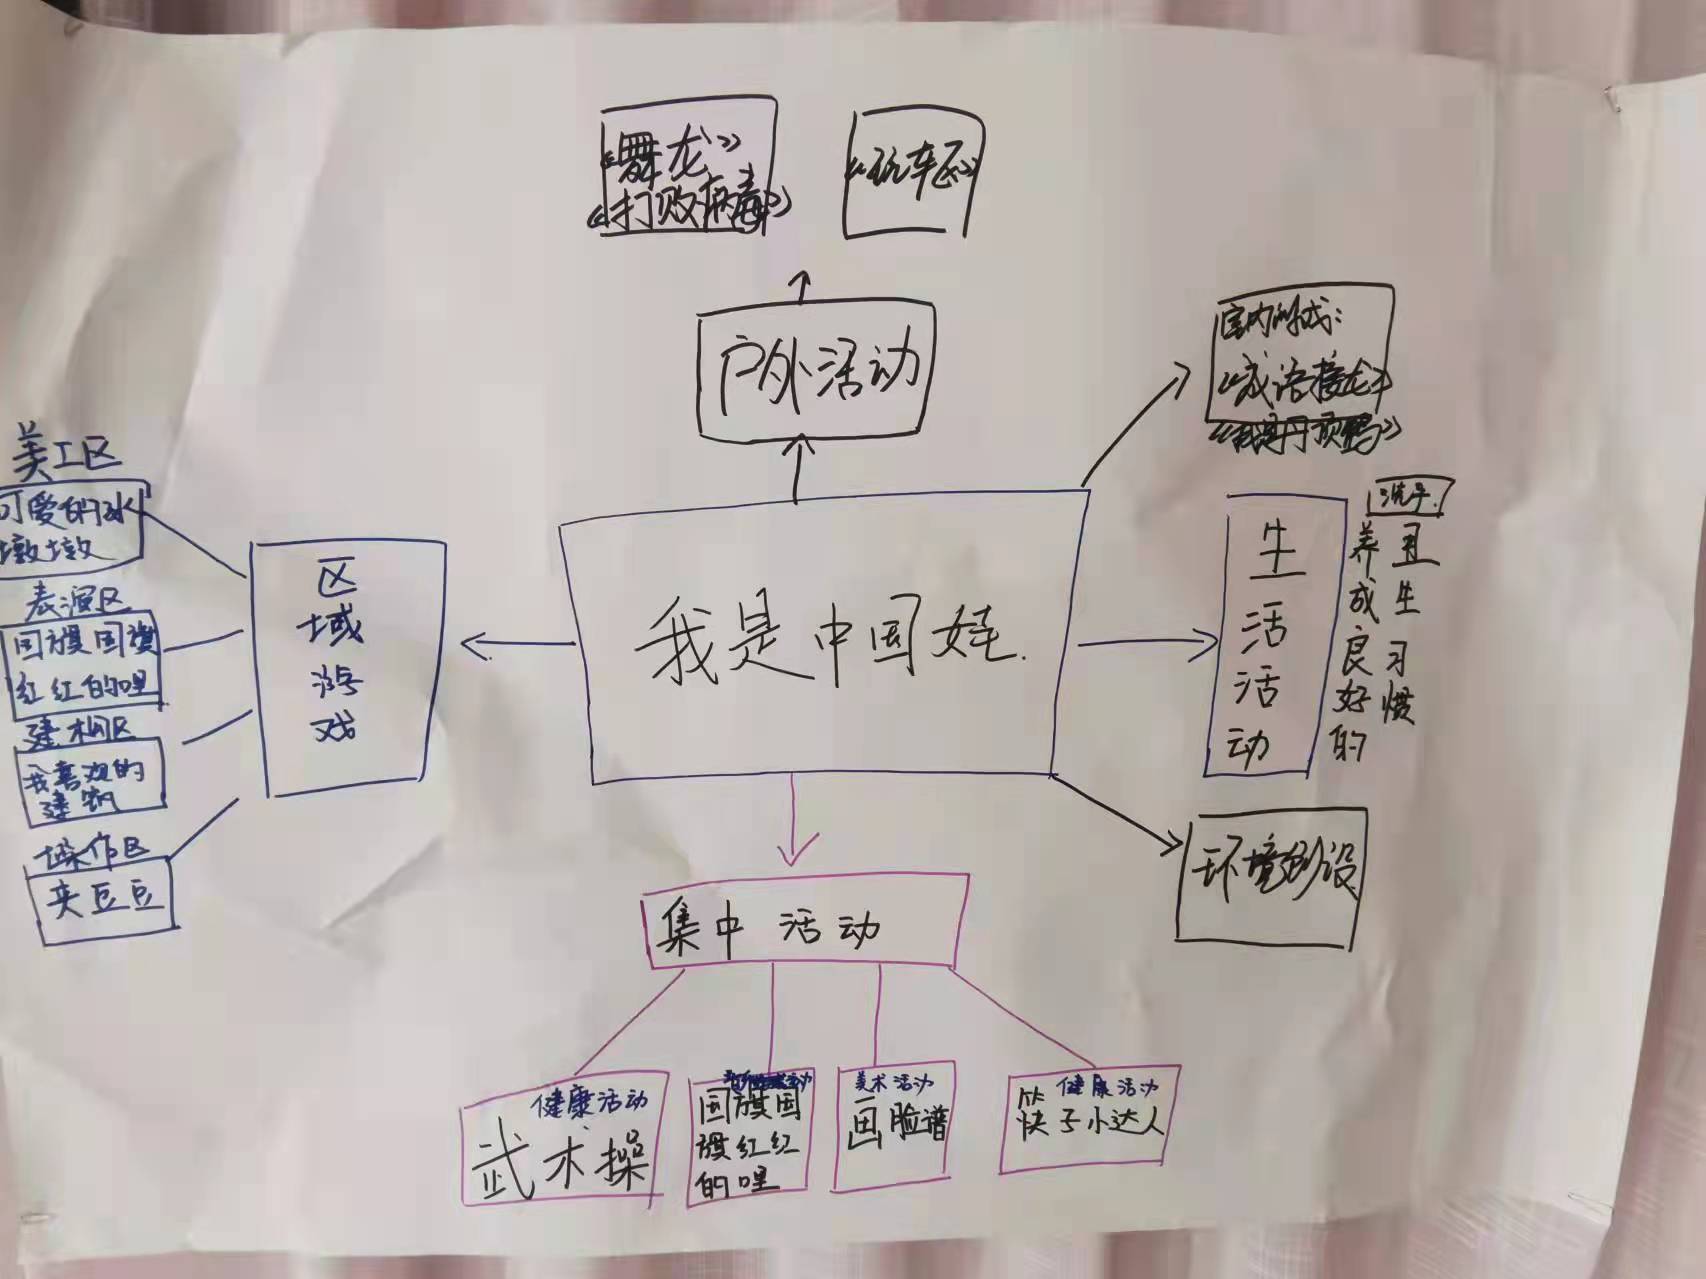 《舞龙》
《打败病毒》
《玩车区》
户外活动
室内游戏：
《成语接龙》
美工区
可爱的冰
墩墩
表演区
国旗国旗
红红的哩
建构区
我喜欢的
建筑
操作区
夹豆豆
区域游戏
我是中国娃.
生活活动
洗手.
养成良好的
卫生习惯
环境创设
集中活动
健康活动
武术操
国旗国
旗红红
的哩
美术活动
画脸谱
健康活动
筷子小达人